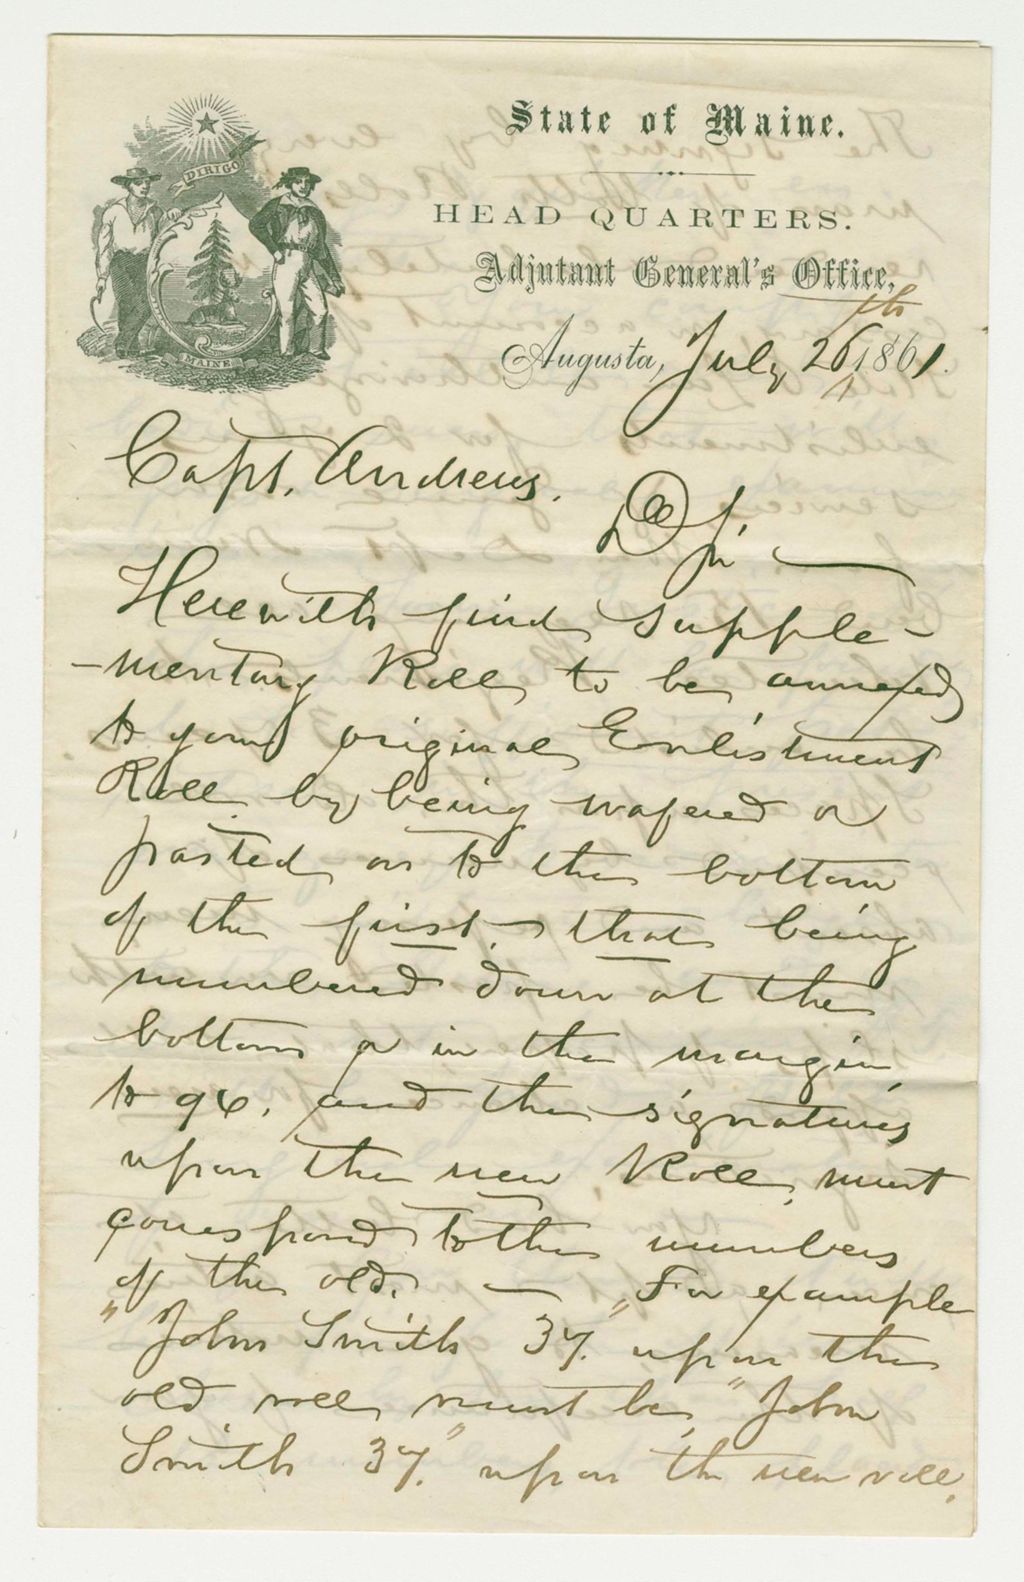 State of Maine.
HEAD QUARTERS.
Adjutant General's Office,
DIRIGO
MAINE
Augusta, July 26th 1861.
Capt. Andrews.
Dr Sir
Herewith find supple-
-mentary Roll to be annexed
to your original Enlistment
Roll by being wafered or
pasted on to the bottom
of the first, that being
numbered down at the
bottom or in the margin
to 96. and the signatures
upon the new Roll, must
correspond to the numbers
of the old. — For example
"John Smith 37." upon the
old roll must be "John
Smith 37." upon the new roll.